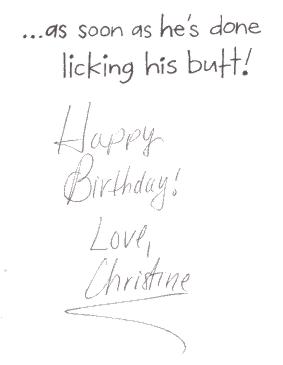 ...as soon as he's done
licking his butt!
Happy
Birthday!
Love,
Christine